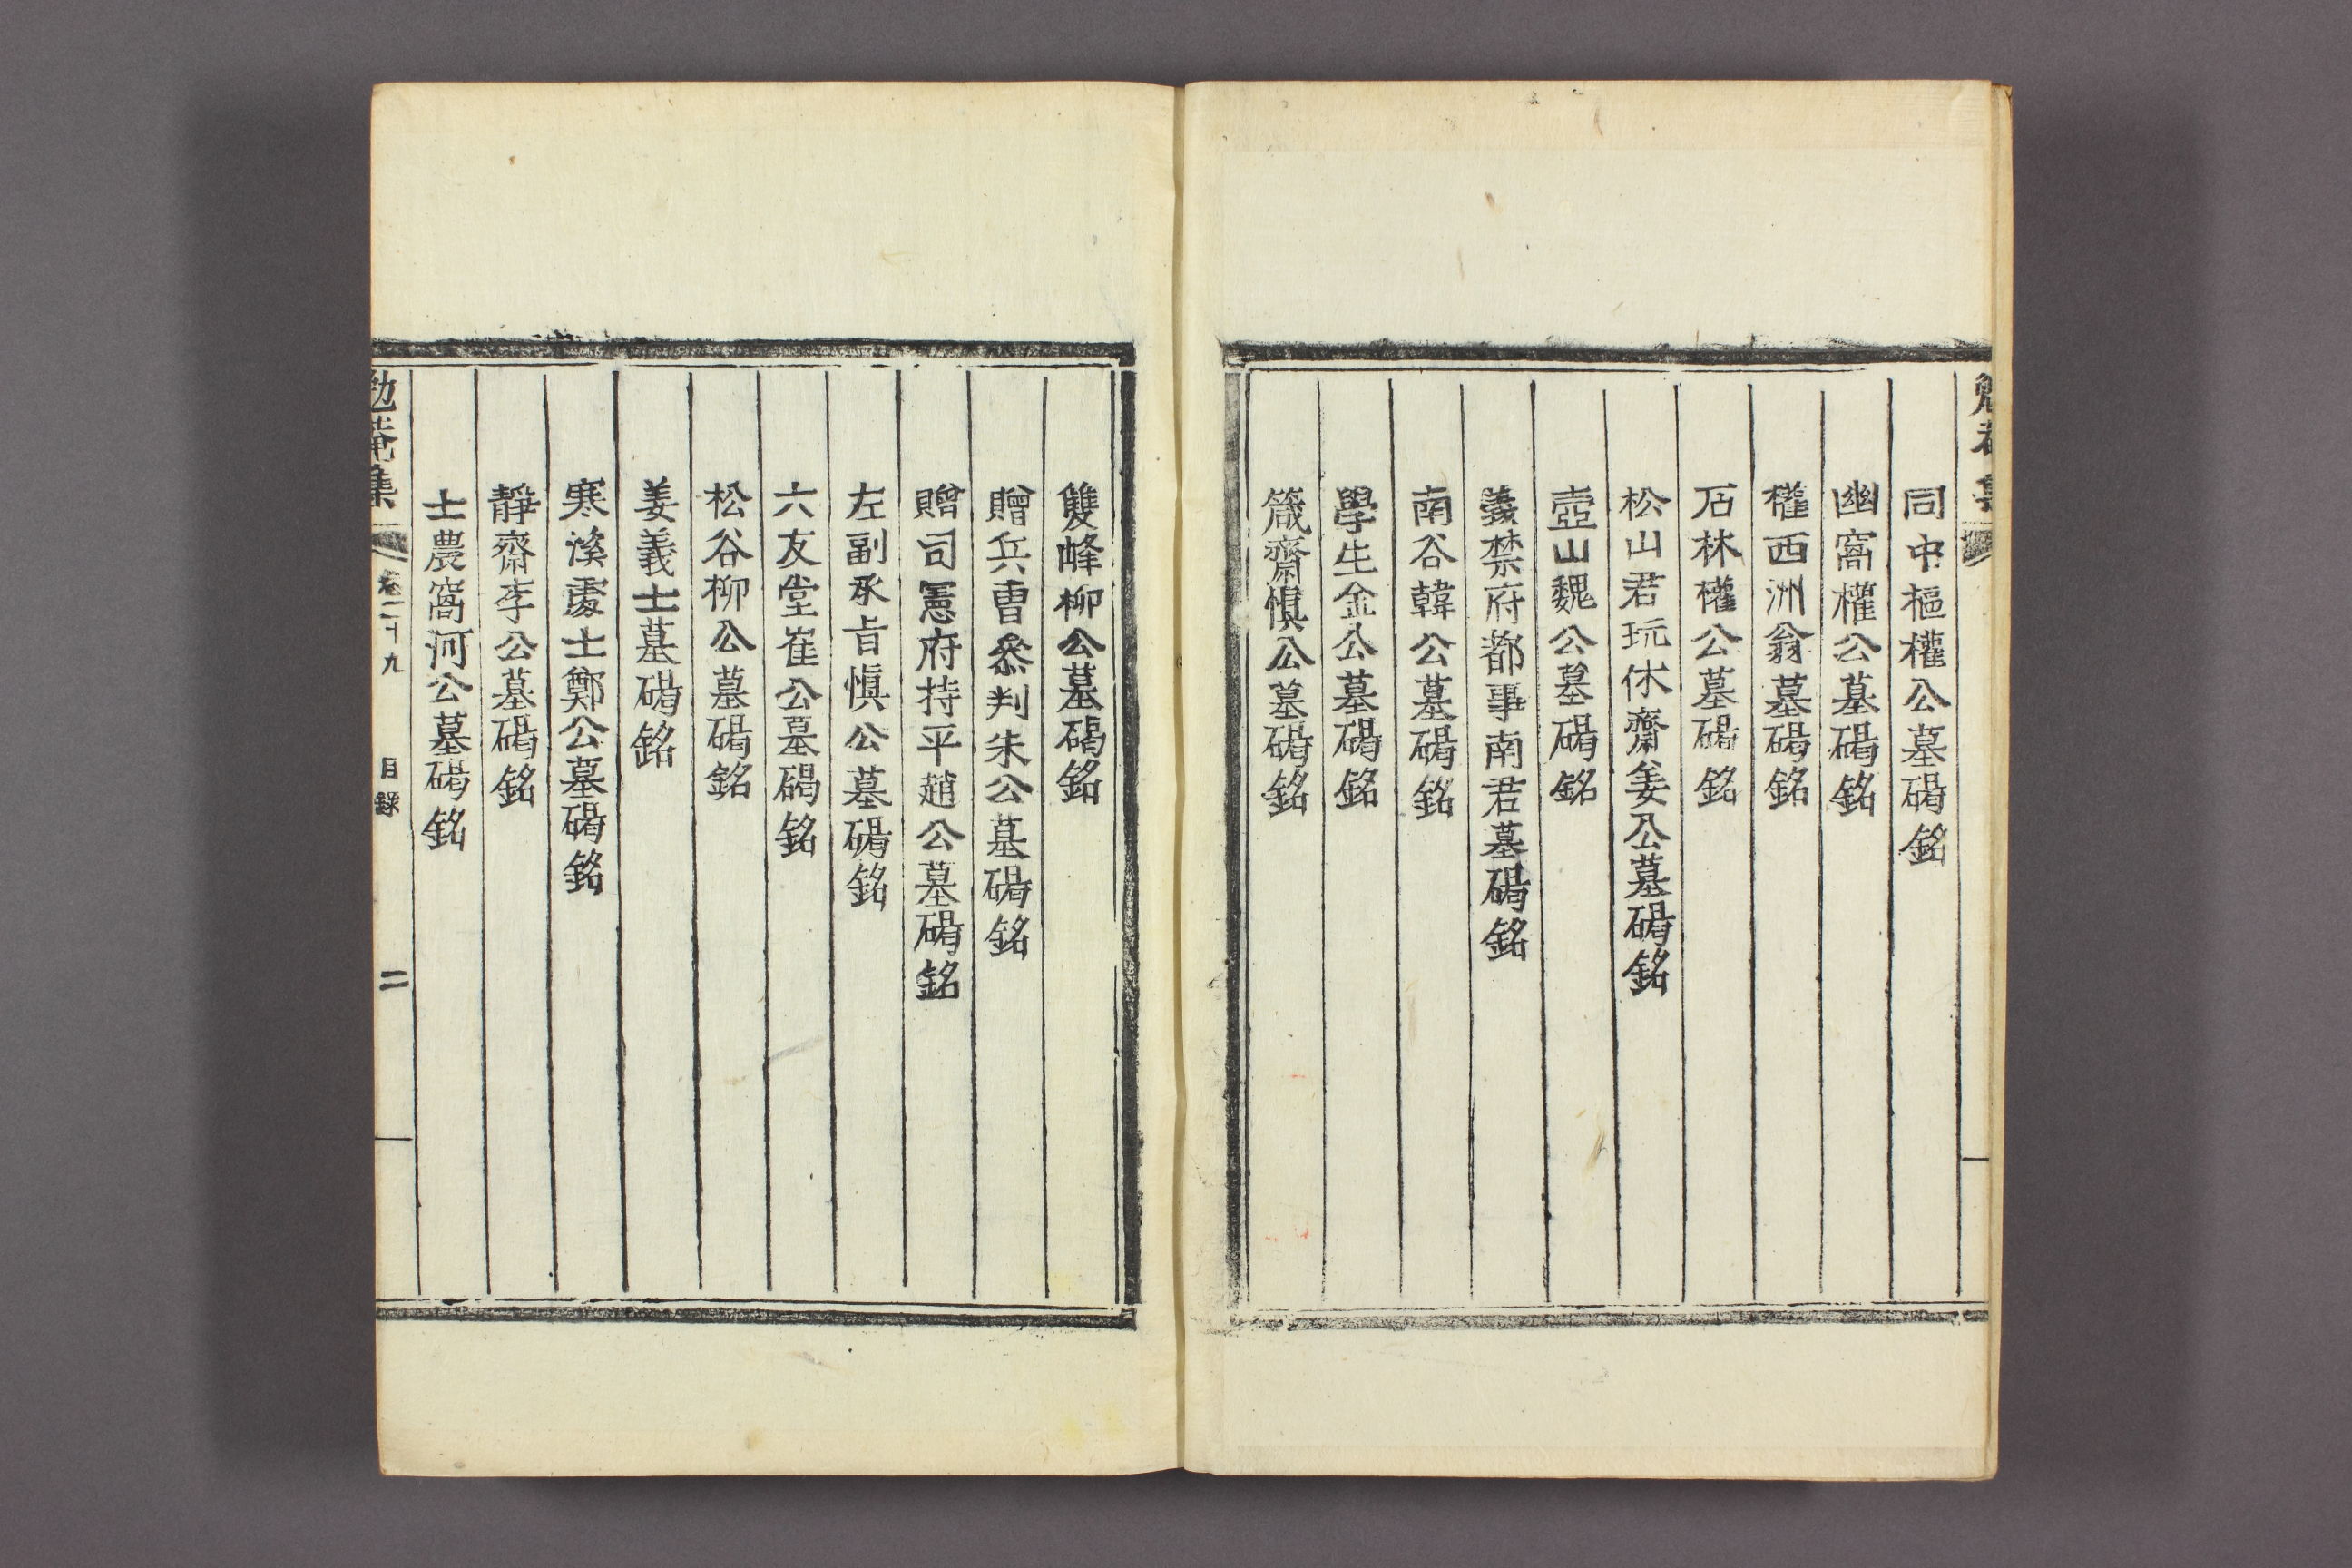 同中樞權公墓碣銘
幽窩權公墓碣銘
權西洲翁墓碣銘
石林權公墓碣銘
松山君玩休齋姜公墓碣銘
壺山魏公墓碣銘
義禁府都事南君墓碣銘
南谷韓公墓碣銘
學生金公墓碣銘
箴齋愼公墓碣銘
雙峰柳公墓碣銘
贈兵曹叅判朱公墓碣銘
贈司憲府持平趙公墓碣銘
左副承旨愼公墓碣銘
六友堂崔公墓碣銘
松谷柳公墓碣銘
姜義士墓碣銘
寒溪處士鄭公墓碣銘
靜齋李公墓碣銘
士農窩河公墓碣銘
勉菴集 卷二十九 目録 二